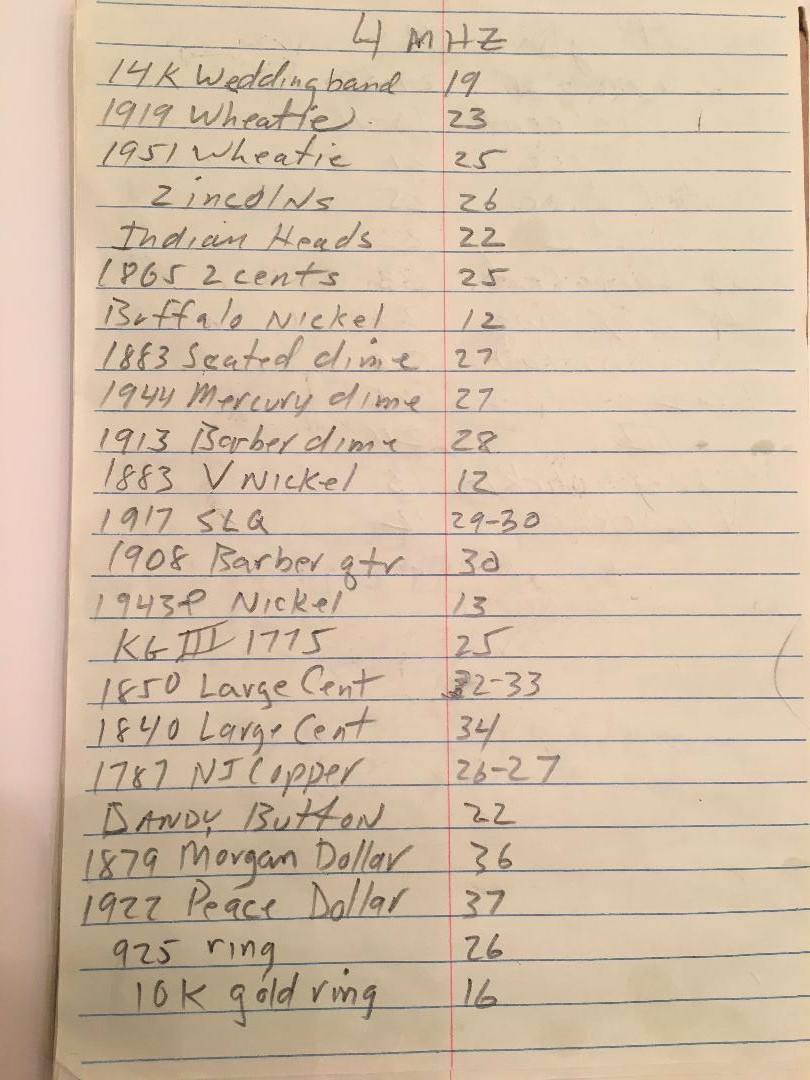 4 MHZ
14K Wedding band 19
1919 Wheatie 23
1951 Wheatie 25
Zincolns 26
Indian Heads 22
1865 2 cents 25
Buffalo Nickel 12
1883 Seated dime 27
1944 Mercury dime 27
1913 Barber dime 28
1883 V Nickel 12
1917 SLQ 29-30
1908 Barber qtr 30
1943P Nickel 13
KG III 1775 25
1850 Large Cent 32-33
1840 Large Cent 34
1787 NJ Copper 26-27
DANDY Button 22
1879 Morgan Dollar 36
1922 Peace Dollar 37
925 ring 26
10K gold ring 16